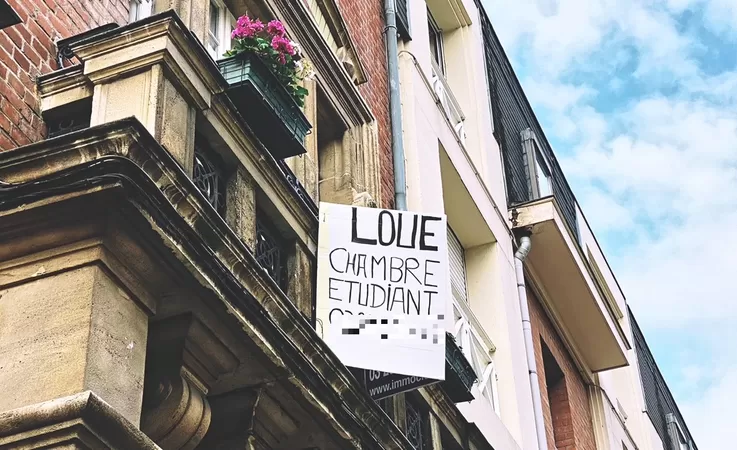 LOUE
CHAMBRE
ETUDIANT
03
www.immoc